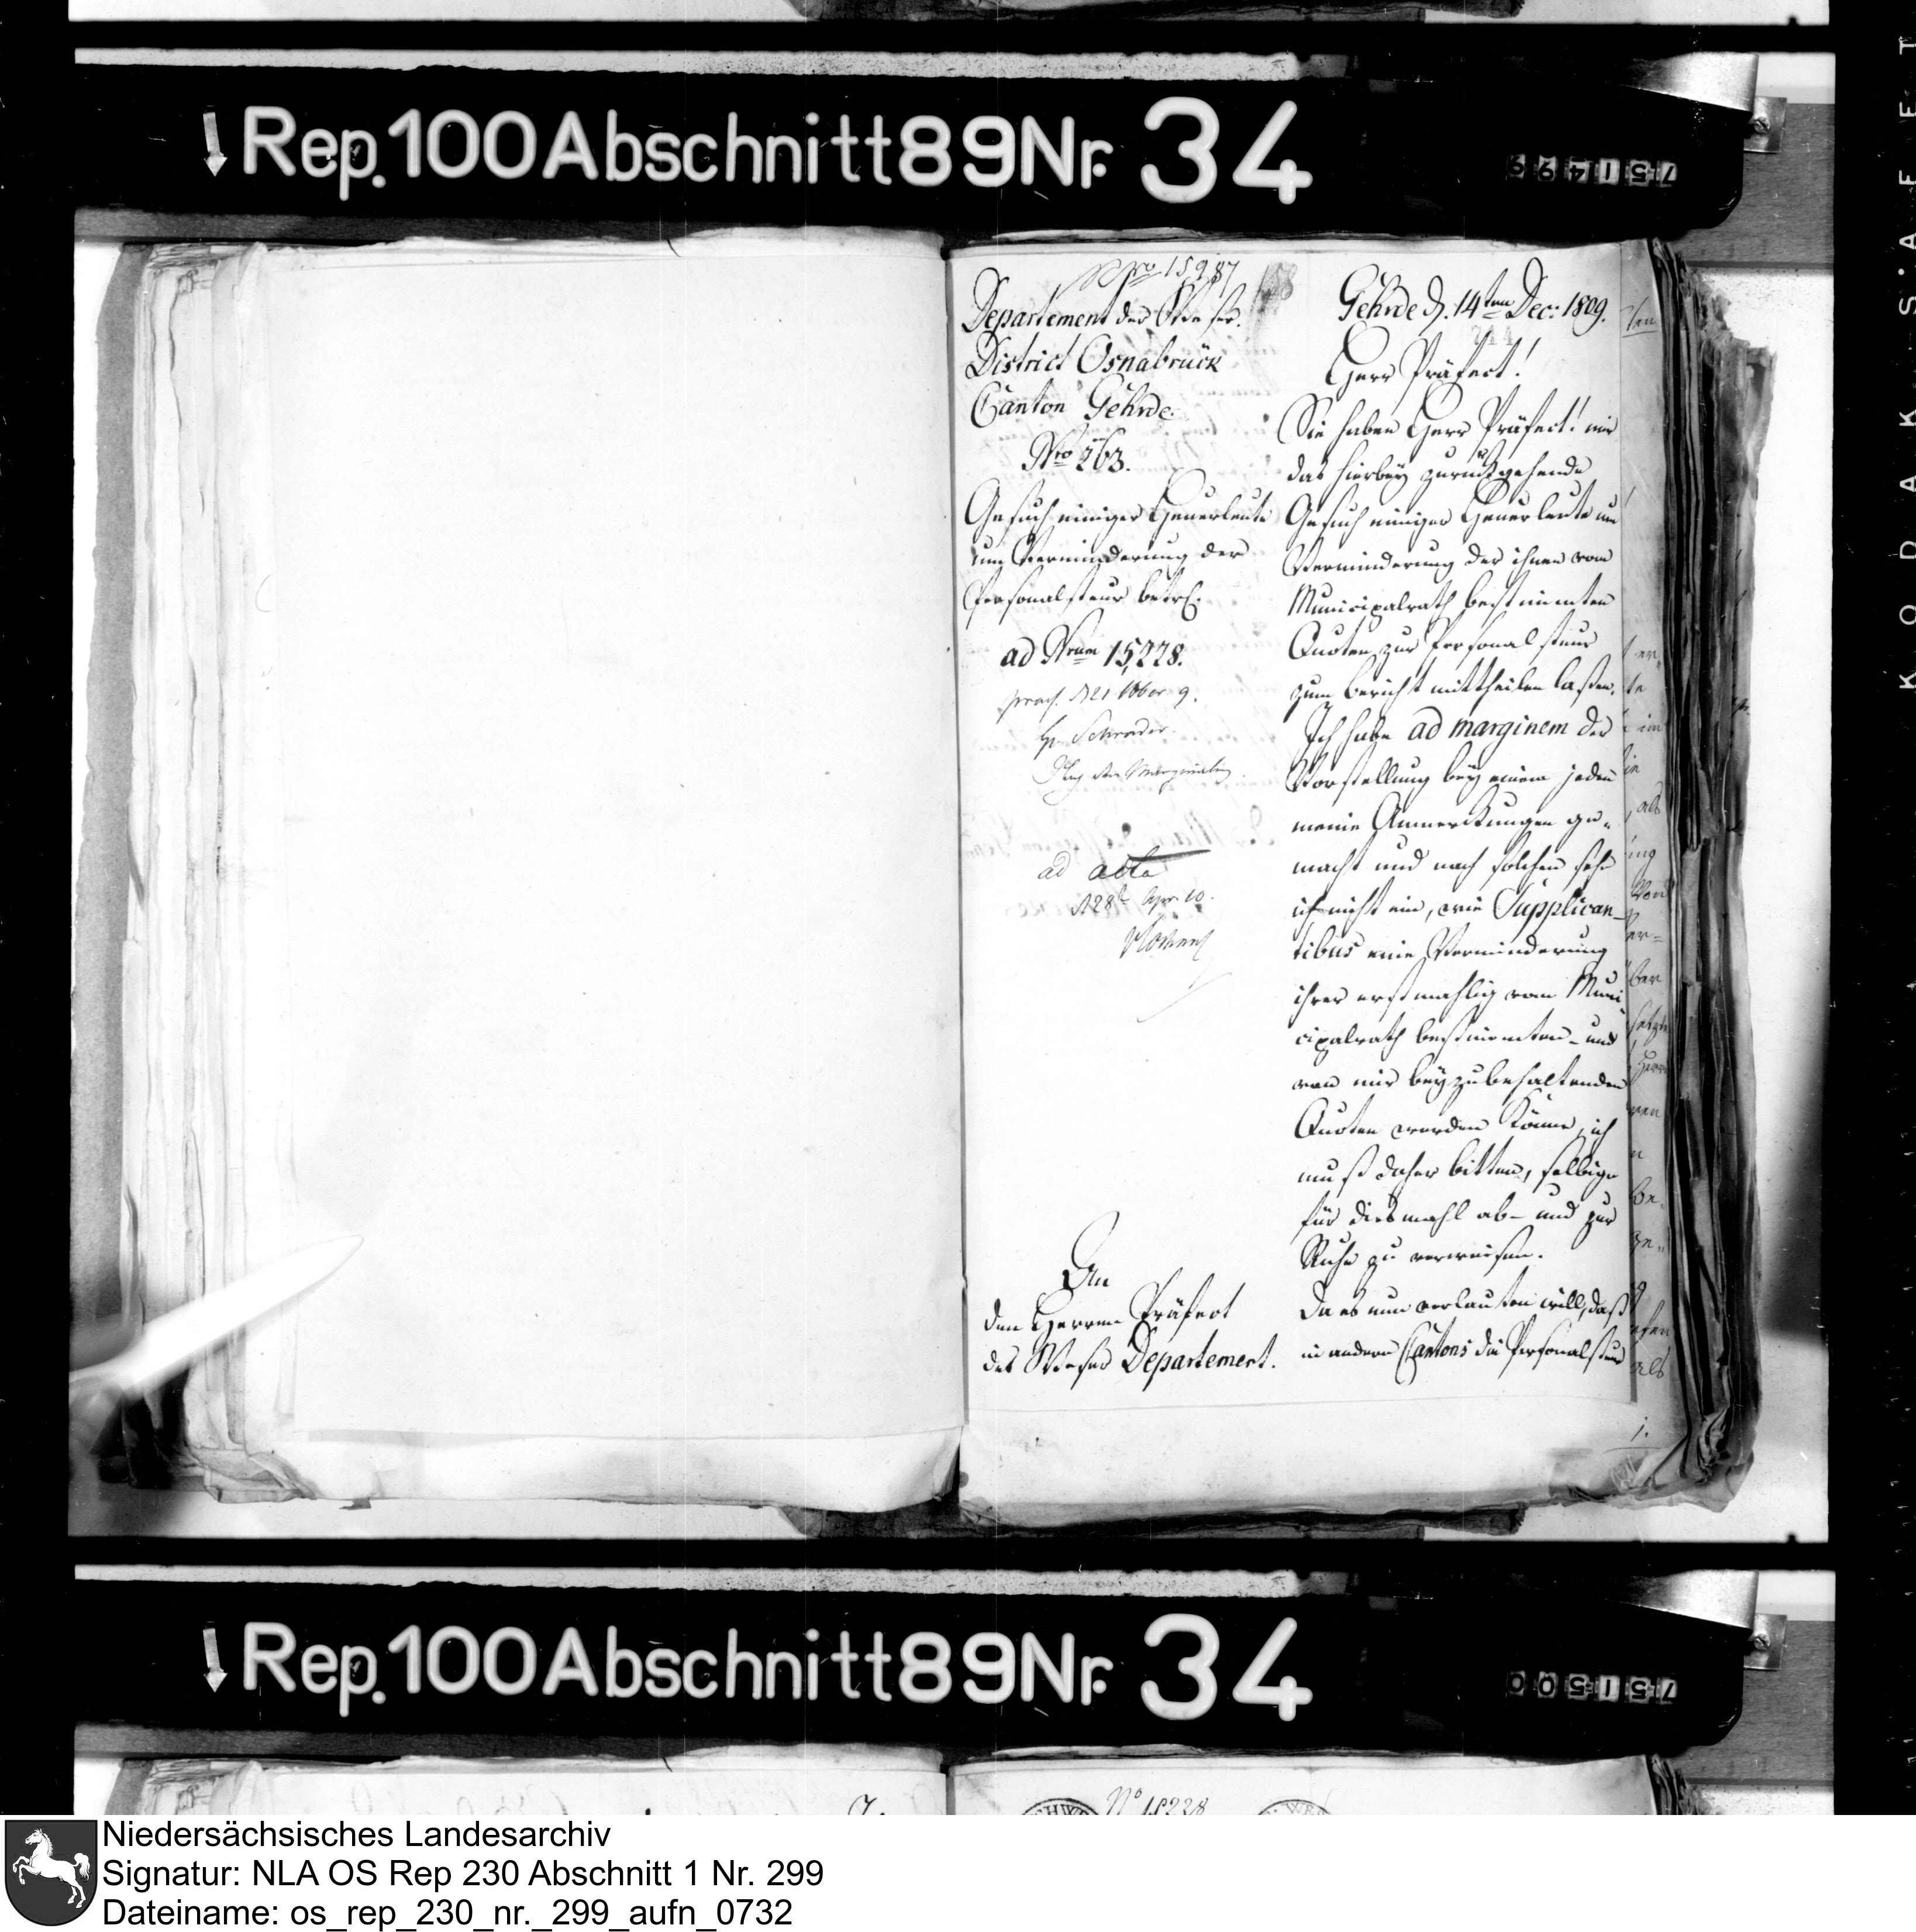 Rep. 100 Abschnitt 89 Nr. 34
751499
Nro 15987
Departement der Weser.
District Osnabrück
Canton Gehrde.
Nro 263.
Gesuch einiger Heuerleute
um Verminderung der
Personalsteur betrf.
ad Nrum 15,228.
praes. d 21 Xber 9.
H. Schrader
ad acta
d 28t Apr. 10.
An
den Herren Präfect
des Weser Departement.
Gehrde d. 14ten Dec: 1809.
Herr Präfect!
Sie haben Herr Präfect! mir
das hierbey zurückgehende
Gesuch einiger Heuerleute um
Verminderung der ihnen vom
Municipalrath bestimmten
Quoten zur Personalsteur
zum Bericht mittheilen laßen.
Ich habe ad marginem der
Vorstellung bey einem jeden
meine Anmerckungen ge-
macht und nach solchen sehe
ich nicht ein, wie Supplican-
tibus eine Verminderung
ihrer erstmahlig vom Muni
cipalrath bestimmten- und
von mir beyzubehaltenden
Quoten werden könne, ich
muß daher bitten, selbige
für diesmahl ab- und zur
Ruhe zu verweisen.
Da es nun verlauten will, daß
in andern Cantons die Personalsteur
Rep. 100 Abschnitt 89 Nr. 34
751500
No 15228
KODAK SAFET
Niedersächsisches Landesarchiv
Signatur: NLA OS Rep 230 Abschnitt 1 Nr. 299
Dateiname: os_rep_230_nr._299_aufn_0732